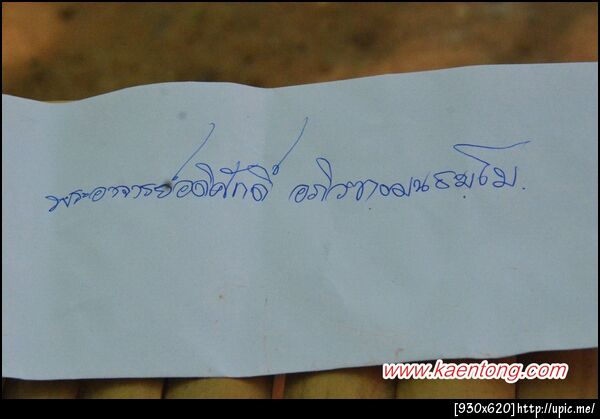 พระอาจารย์อดิศักดิ์ อภิวฑฺฒนธมฺโม.
www.kaentong.com
[930x620]http://upic.me/